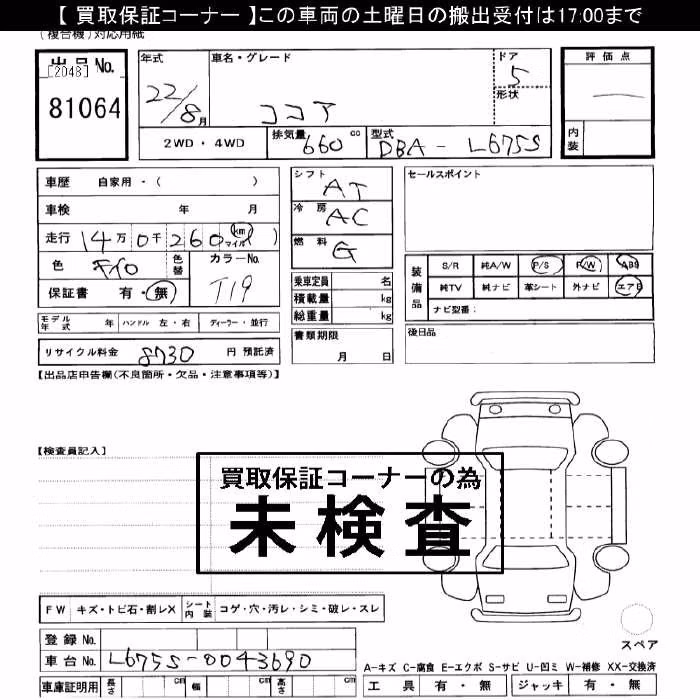 【 買取保証コーナー 】この車両の土曜日の搬出受付は17:00まで
(複合機)対応用紙
出品No.
[2048]
81064
年式 車名・グレード ドア
22/8月 ココア 5
形状
2WD・4WD 排気量 660 cc 型式 DBA - L675S
評価点
内装
車歴 自家用・( )
車検 年 月
走行 14万0千260(km マイル)
色 チャイロ 色替 カラーNo.
保証書 有・無 T19
シフト AT
冷房 AC
燃料 G
乗車定員 名
積載量 kg
総重量 kg
書類期限
月 日
セールスポイント
装備品 S/R 純A/W P/S P/W ABS
純TV 純ナビ 革シート 外ナビ エアB
ナビ型番:
後日品
モデル年式 年 ハンドル 左・右 ディーラー・並行
リサイクル料金 8730 円 預託済
【出品店申告欄(不良箇所・欠品・注意事項等)】
【検査員記入】
買取保証コーナーの為
未検査
FW キズ・トビ石・割レX シート内装 コゲ・穴・汚レ・シミ・破レ・スレ
登録No.
車台No. L675S-0043690
車庫証明用 長さ cm 幅 cm 高さ cm
スペア
A-キズ C-腐食 E-エクボ S-サビ U-凹ミ W-補修 XX-交換済
工具 有・無 ジャッキ 有・無